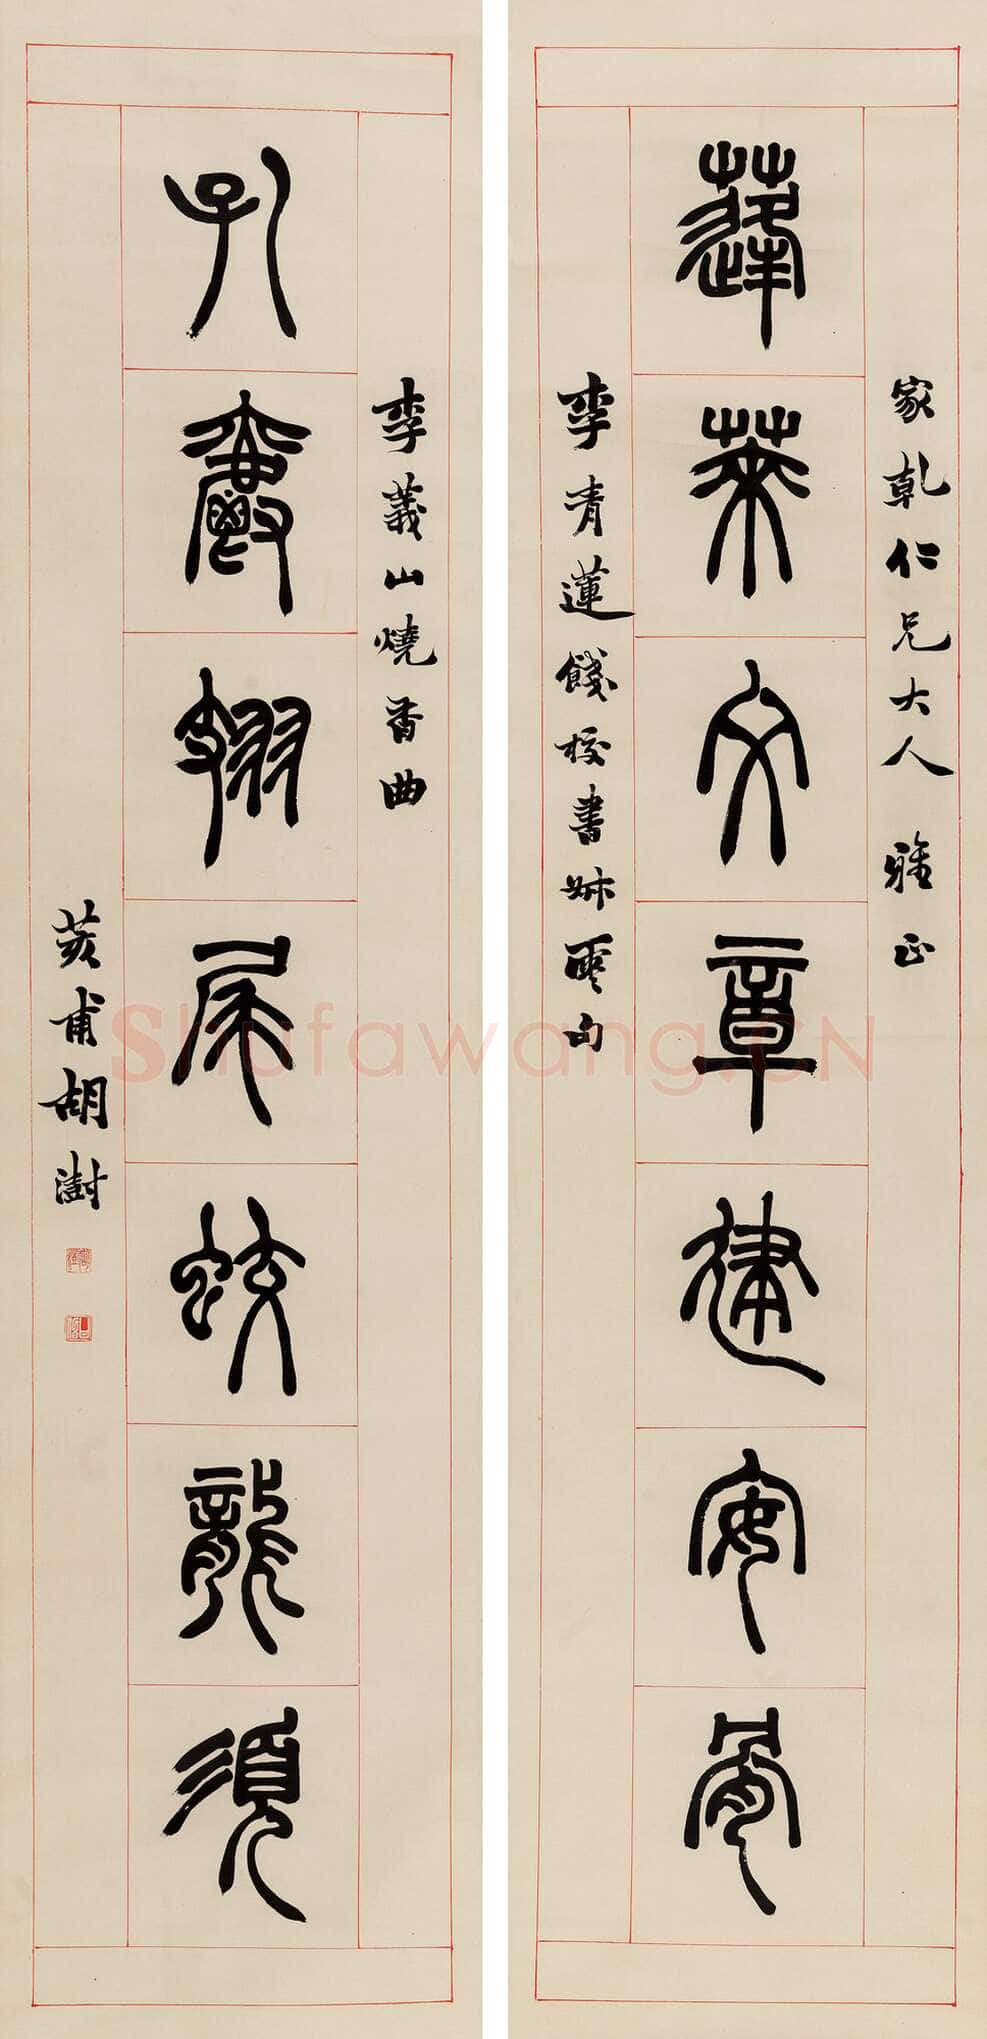 家乾仁兄大人 雅正
蓬萊文章建安骨
李青蓮餞校書叔雲句
李義山燒香曲
孔爵翅尾蛟龍須
荄甫胡澍
Shufawang.CN